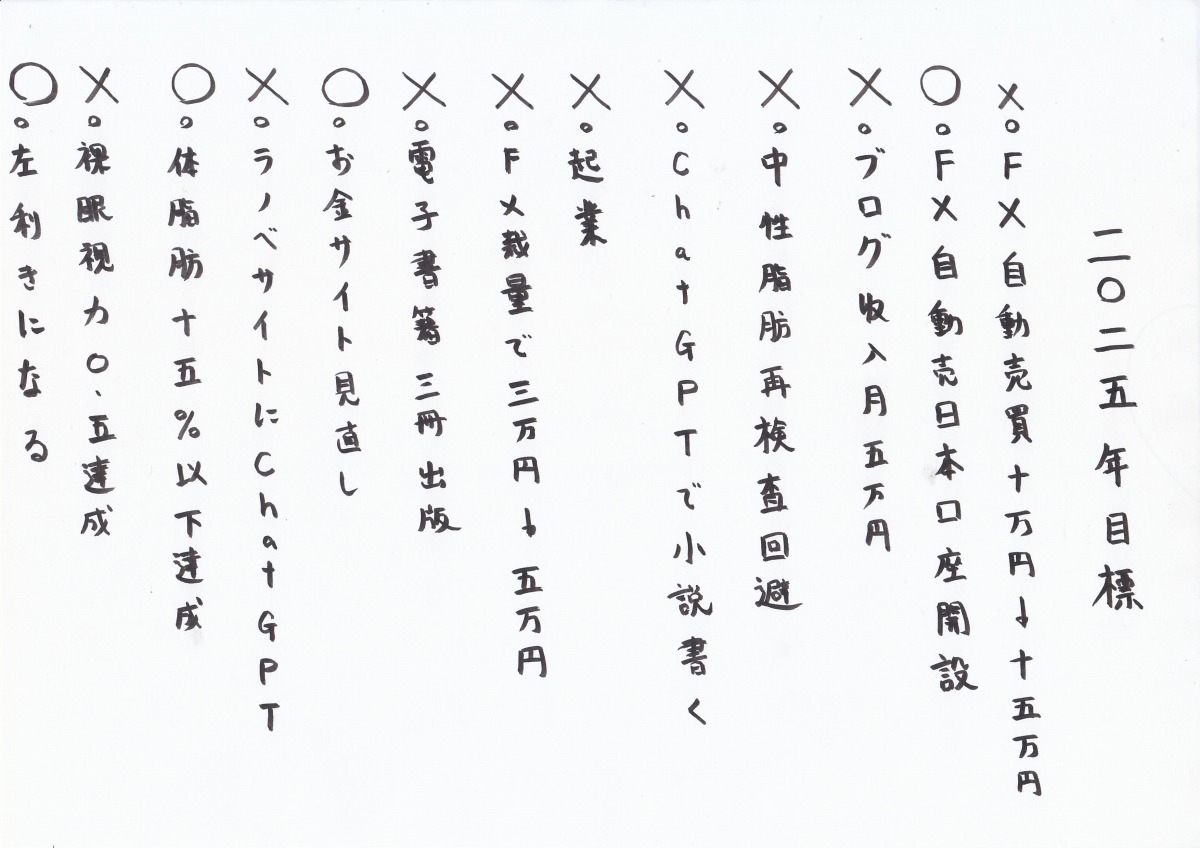 二〇二五年目標
×。FX自動売買十万円→十五万円
○。FX自動売日本口座開設
×。ブログ収入月五万円
×。中性脂肪再検査回避
×。ChatGPTで小説書く
×。起業
×。FX裁量で三万円→五万円
×。電子書籍三冊出版
○。お金サイト見直し
×。ラノベサイトにChatGPT
○。体脂肪十五%以下達成
×。裸眼視力〇、五達成
○。左利きになる